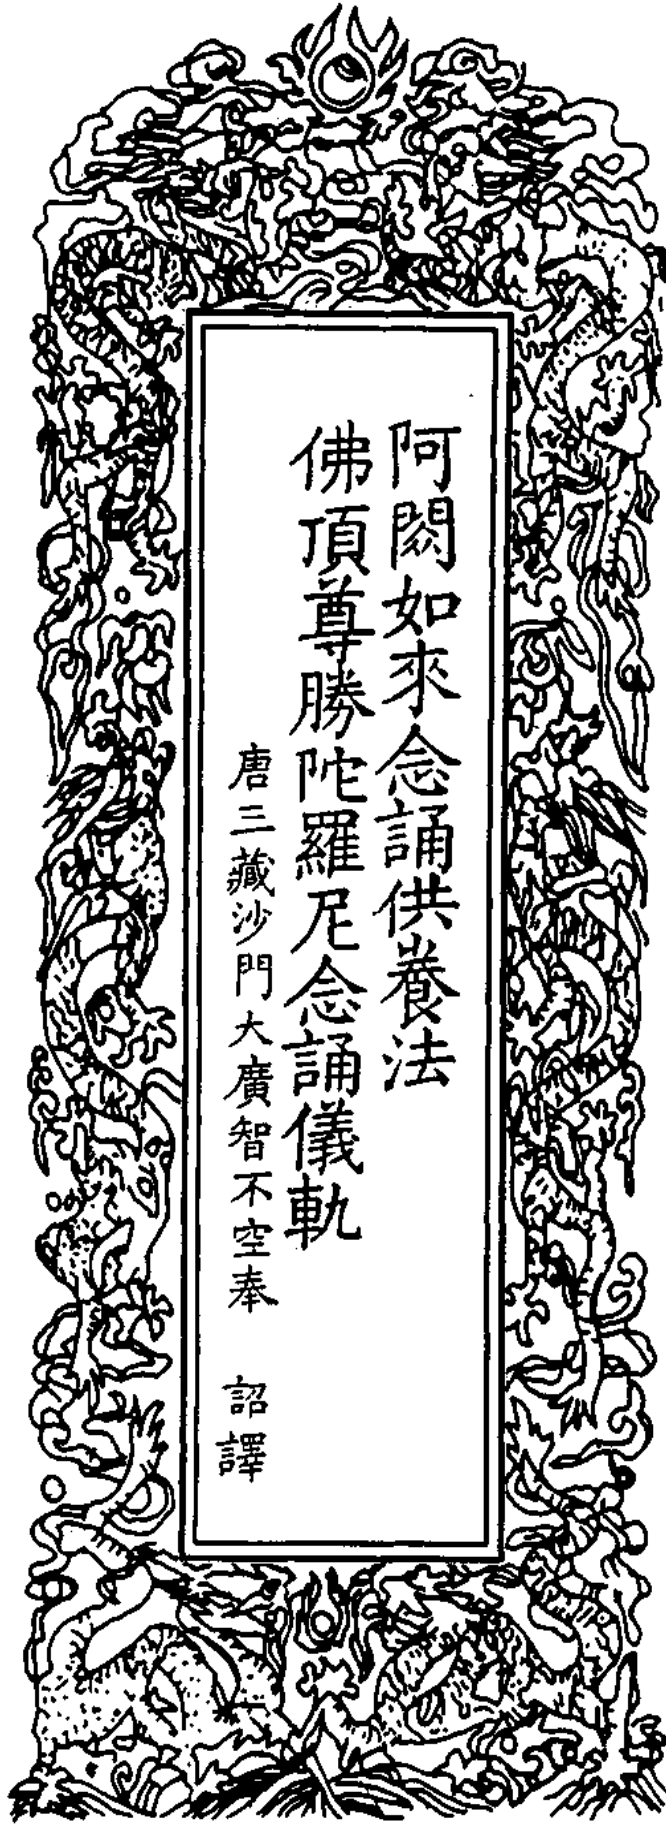 阿閦如來念誦供養法
佛頂尊勝陀羅尼念誦儀軌
唐三藏沙門大廣智不空奉　詔譯